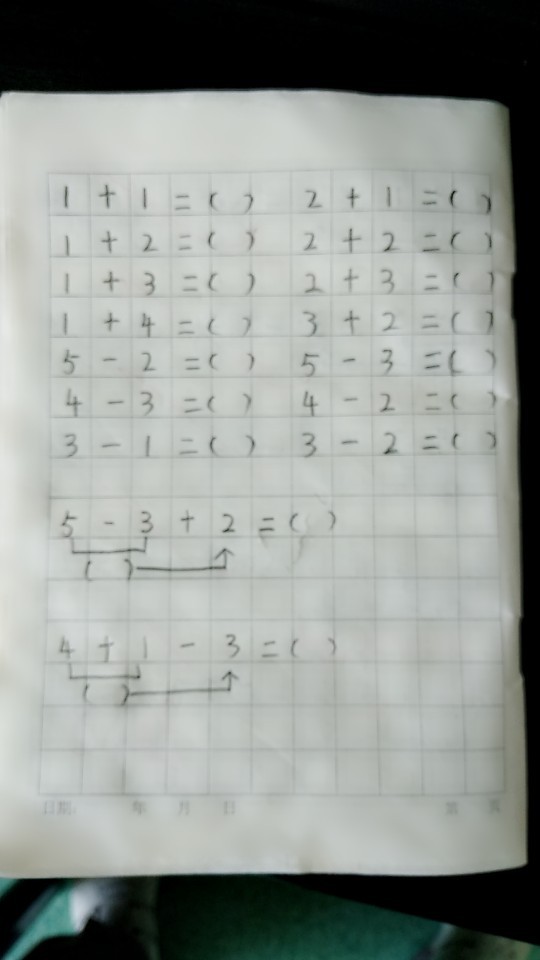 1 + 1 = ( ) 2 + 1 = ( )
1 + 2 = ( ) 2 + 2 = ( )
1 + 3 = ( ) 2 + 3 = ( )
1 + 4 = ( ) 3 + 2 = ( )
5 - 2 = ( ) 5 - 3 = ( )
4 - 3 = ( ) 4 - 2 = ( )
3 - 1 = ( ) 3 - 2 = ( )
5 - 3 + 2 = ( )
( )
4 + 1 - 3 = ( )
( )
日期: 年 月 日 第 页